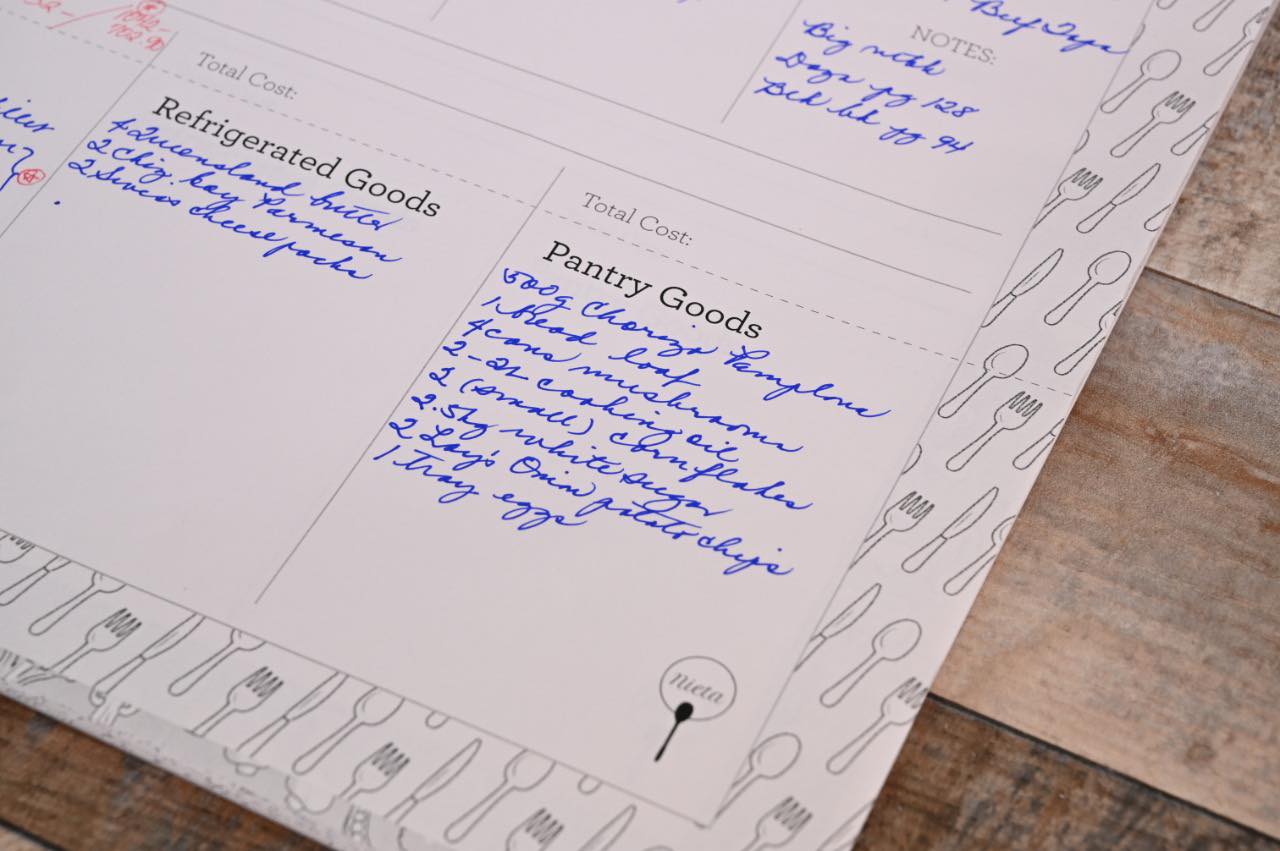 Beef Tapa
NOTES:
Big
Days pg 128
pg 94
Total Cost:
Refrigerated Goods
4 Queensland butter
2 Chiz. kay Parmesan
2 Swiss cheese packs
Total Cost:
Pantry Goods
500g Chorizo Pamplona
1 bread loaf
4 cans mushrooms
2-2L cooking oil
2 (small) cornflakes
2.5kg white sugar
2 Lay's Onion potato chips
1 tray eggs
Nieta